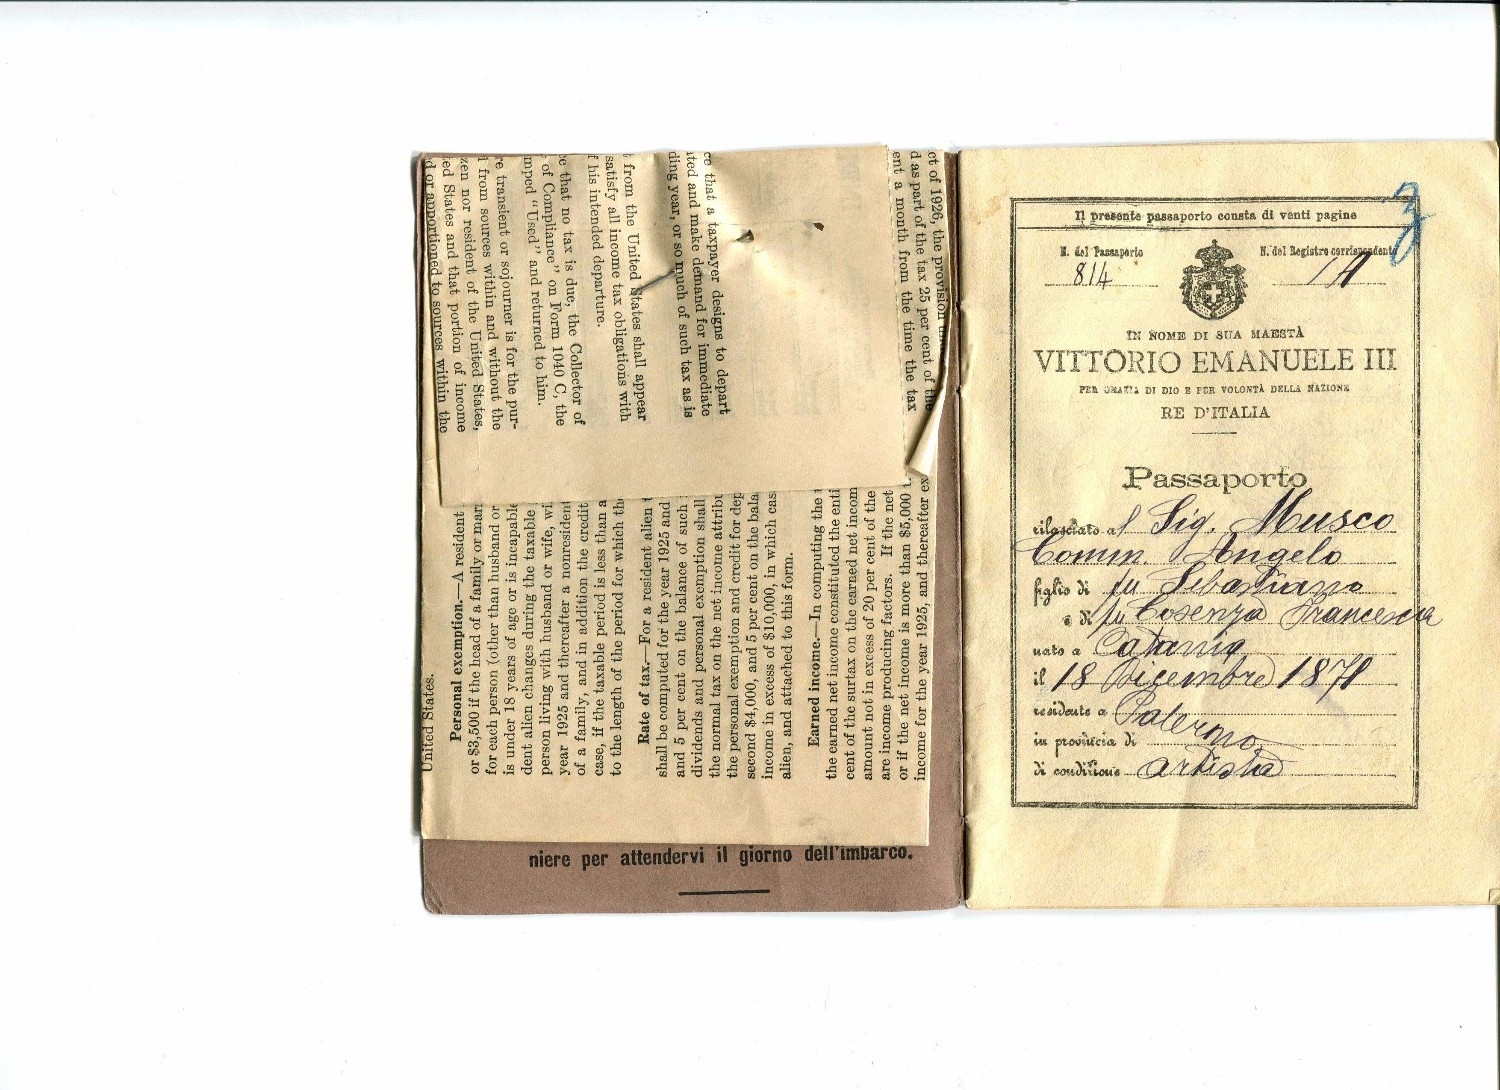 ce that a taxpayer designs to depart
ted and make demand for immediate
ding year, or so much of such tax as is
t from the United States shall appear
satisfy all income tax obligations with
f his intended departure.
e that no tax is due, the Collector of
of Compliance" on Form 1040 C, the
mped "Used" and returned to him.
e transient or sojourner is for the pur-
l from sources within and without the
zen nor resident of the United States,
ed States and that portion of income
d or apportioned to sources within the
ct of 1926, the provision
d as part of the tax 25 per cent of the
ent a month from the time the tax
United States.
Personal exemption.—A resident
or $3,500 if the head of a family or mari
for each person (other than husband or
is under 18 years of age or is incapable
dent alien changes during the taxable
person living with husband or wife, wi
year 1925 and thereafter a nonresident
of a family, and in addition the credit
case, if the taxable period is less than a
to the length of the period for which the
Rate of tax.—For a resident alien t
shall be computed for the year 1925 and
and 5 per cent on the balance of such
dividends and personal exemption shall
the normal tax on the net income attribu
the personal exemption and credit for dep
second $4,000, and 5 per cent on the bala
income in excess of $10,000, in which cas
alien, and attached to this form.
Earned income.—In computing the
the earned net income constituted the enti
cent of the surtax on the earned net incom
amount not in excess of 20 per cent of the
are income producing factors. If the net
or if the net income is more than $5,000
income for the year 1925, and thereafter ex
niere per attendervi il giorno dell'imbarco.
Il presente passaporto consta di venti pagine
N. del Passaporto
N. del Registro corrispondente
814
IN NOME DI SUA MAESTÀ
VITTORIO EMANUELE III
PER GRAZIA DI DIO E PER VOLONTÀ DELLA NAZIONE
RE D'ITALIA
Passaporto
rilasciato al Sig. Musco
Comm. Angelo
figlio di fu Sebastiano
e di fu Cosenza Francesca
nato a Catania
il 18 Dicembre 1871
residente a Palermo
in provincia di
di condizione artista